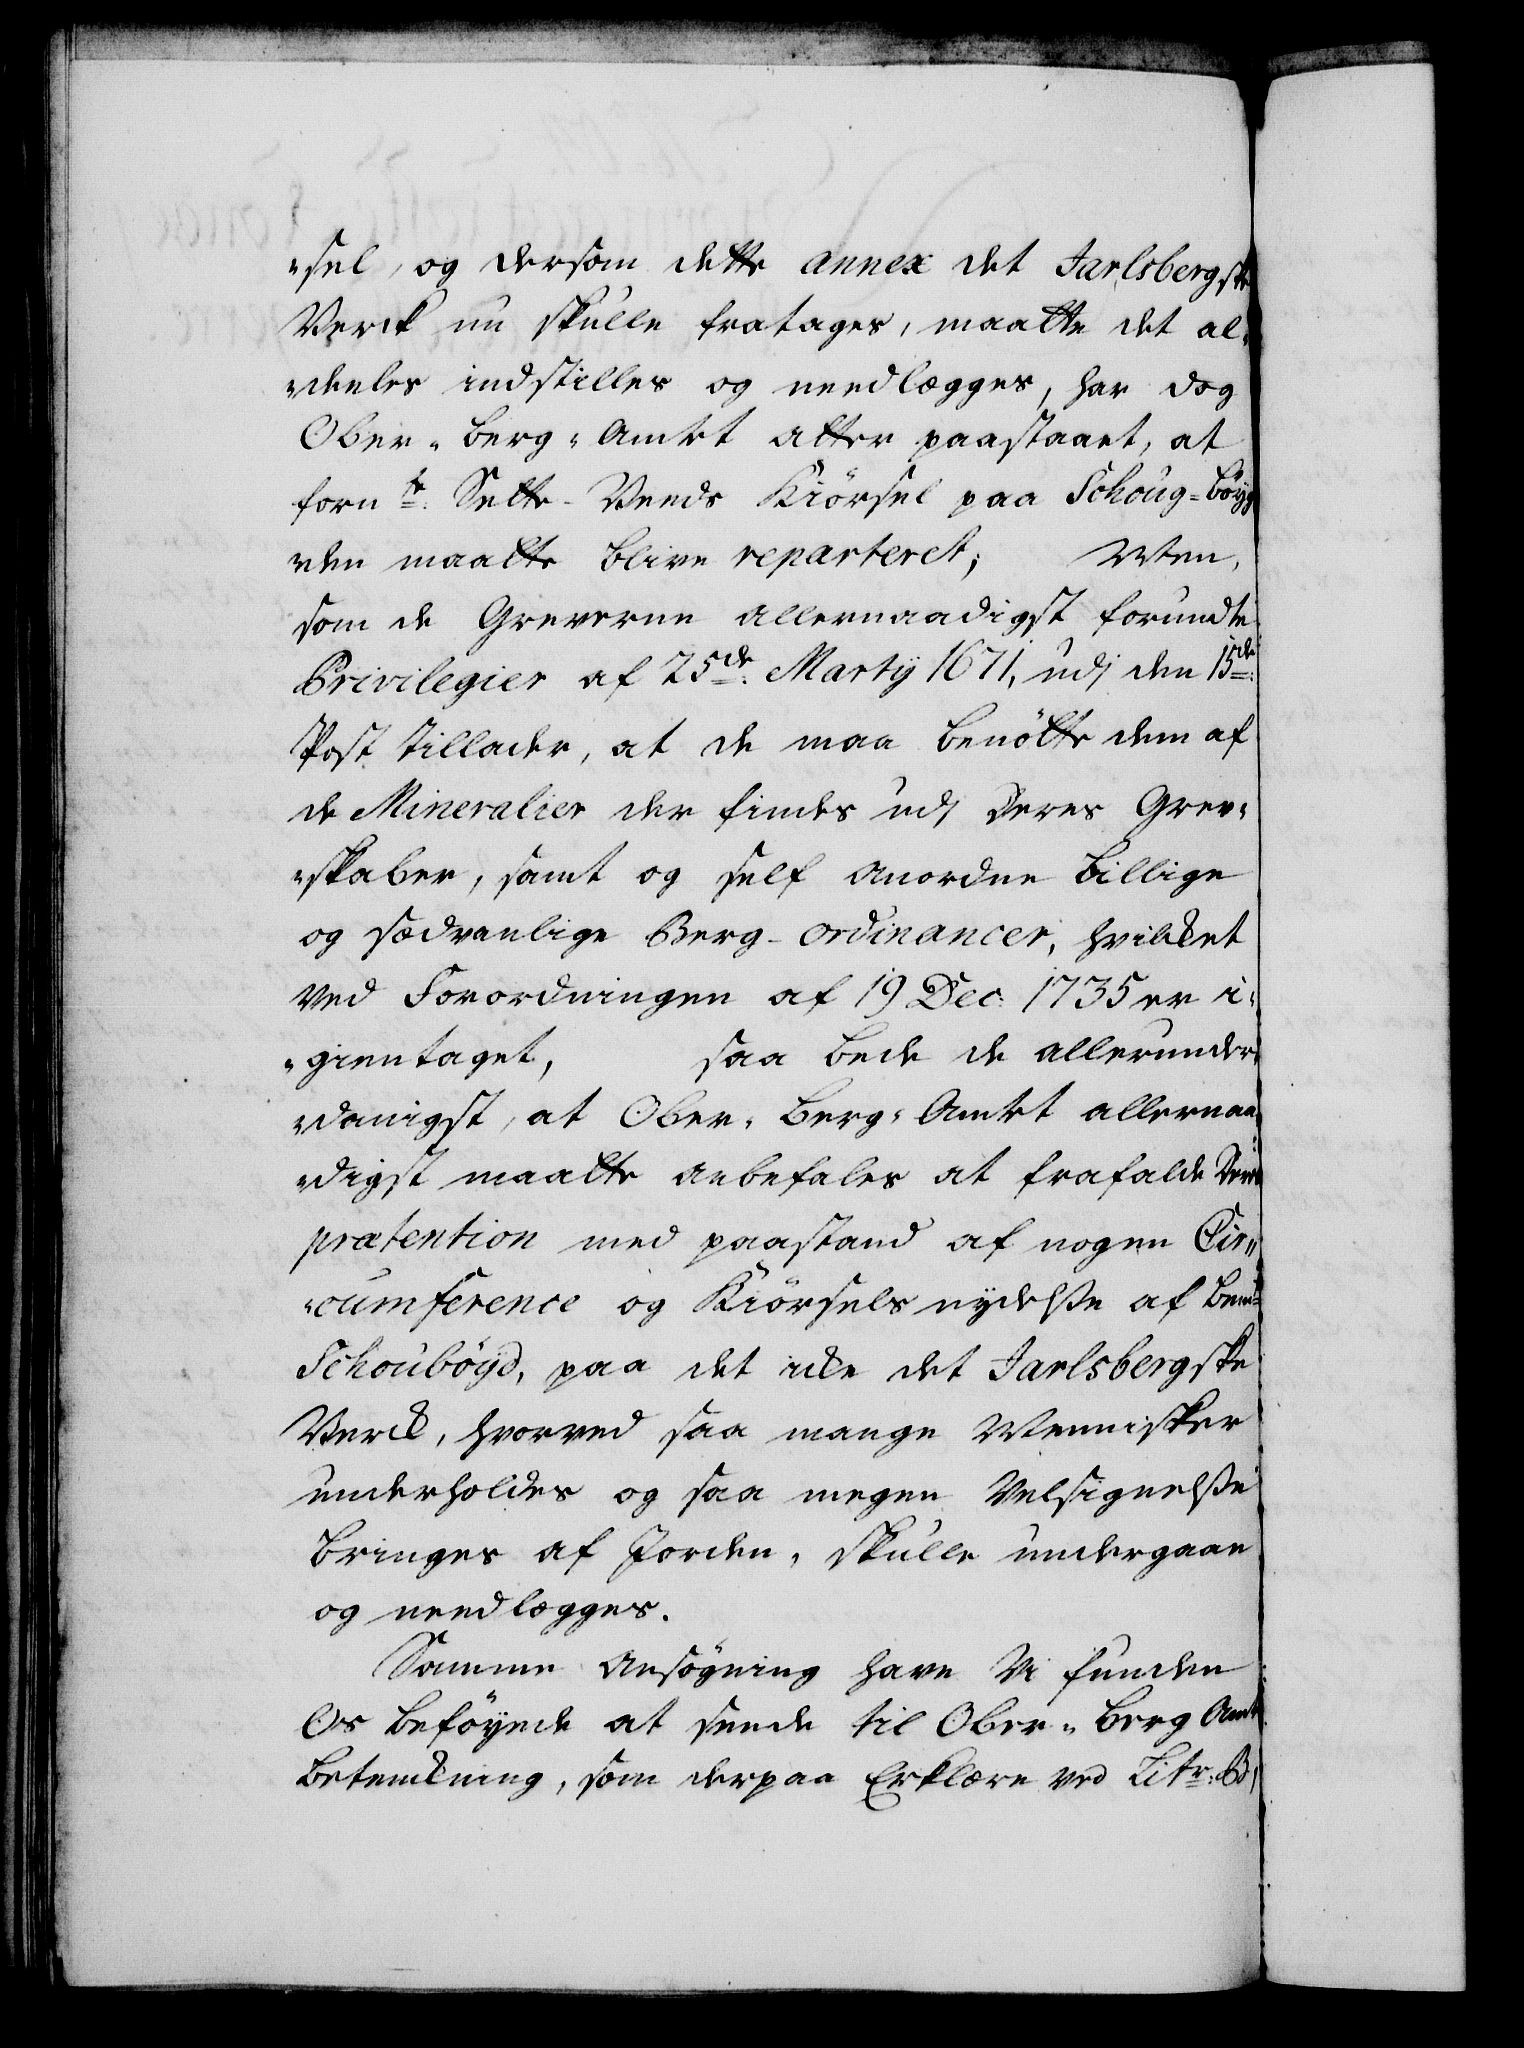 "sel, og dersom dette annex det Jarlsbergske
Verck nu skulle fratages, maatte det al-
"deeles indstilles og needlægges, har dog
Ober-Berg-Amtet atter paastaaet, at
forn te: Sette-Veeds Kiörsel paa Schoug-Böyg
"den maatte blive reparteret; Men,
som de Greverne allernaadigst forundte
Privilegier af 25de: Martij 1671, udj den 15de:
Post tillader, at de maa benötte dem af
de Mineralier der findes udj deres Grev-
"skaber, samt og self anordne billige
og sædvanlige Berg-ordinancer, hvilket
ved Forordningen af 19 Dec: 1735 er i-
"gientaget, saa bede de allerunder-
"danigst, at Ober-Berg-Amtet allernaa-
"digst maatte anbefales at frafalde deres
prætention med paastand af nogen Cir"
"cumference og Kiörsels nydelsse af bem:te
Schouböyd, paa det icke det Jarlsbergske
Verck, hvorved saa mange Mennisker
underholdes og saa megen Velsignelsse
bringes af Jorden, skulle undergaae
og needlægges.
Samme Ansögning have Vi funden
Os beföyede at sende til Ober-Berg Amts
Betenckning, som derpaa Erklære ved Litr: B,